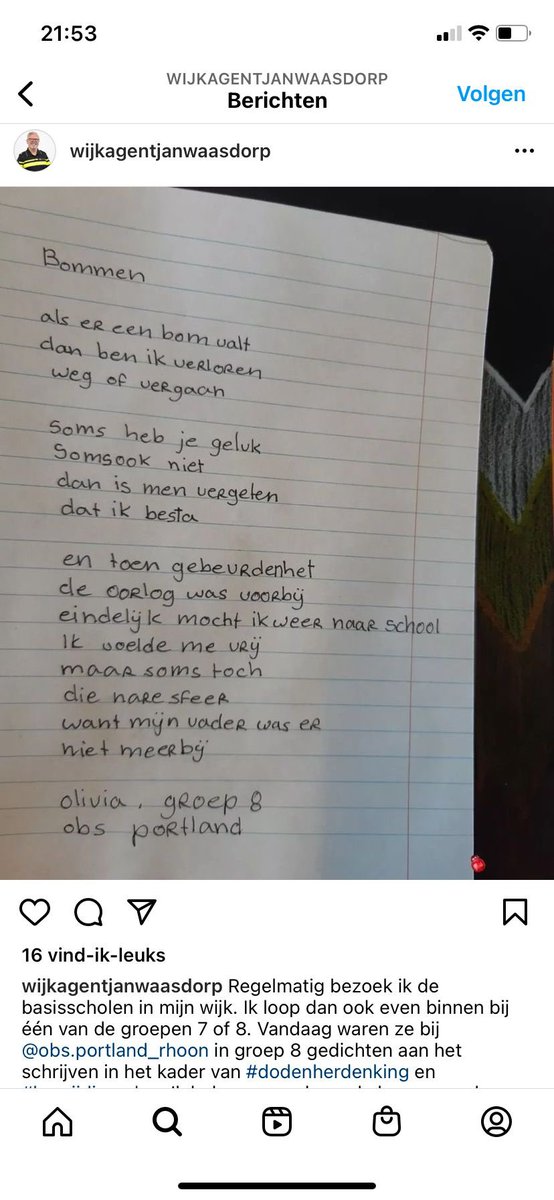 21:53
WIJKAGENTJANWAASDORP
Berichten
Volgen
wijkagentjanwaasdorp
Bommen
als er een bom valt
dan ben ik verloren
weg of vergaan
Soms heb je geluk
Somsook niet
dan is men vergeten
dat ik besta
en toen gebeurdenhet
de oorlog was voorbij
eindelijk mocht ik weer naar school
Ik voelde me vrij
maar soms toch
die nare sfeer
want mijn vader was er
niet meerbij
olivia, groep 8
obs portland
16 vind-ik-leuks
wijkagentjanwaasdorp Regelmatig bezoek ik de
basisscholen in mijn wijk. Ik loop dan ook even binnen bij
één van de groepen 7 of 8. Vandaag waren ze bij
@obs.portland_rhoon in groep 8 gedichten aan het
schrijven in het kader van #dodenherdenking en